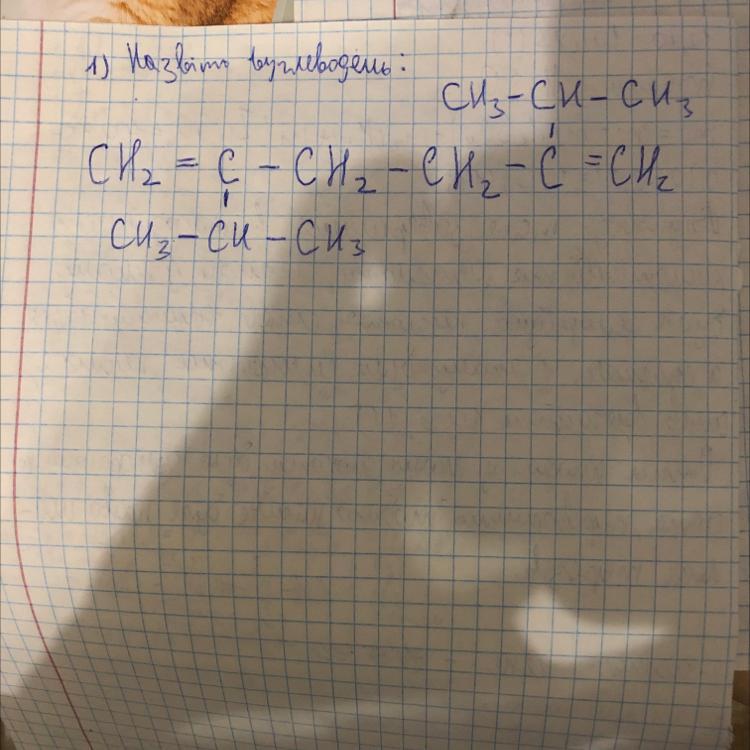 1) Назвіть вуглеводень:
CH₃-CH-CH₃
CH₂=C-CH₂-CH₂-C=CH₂
CH₃-CH-CH₃